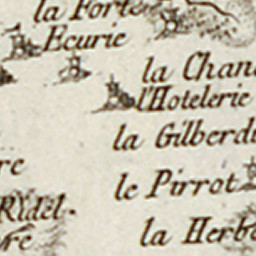 la Forte
Ecurie
la Chan
l'Hotelerie
la Gilberdi
re
le Pirrot
Ridel.
re
la Herb